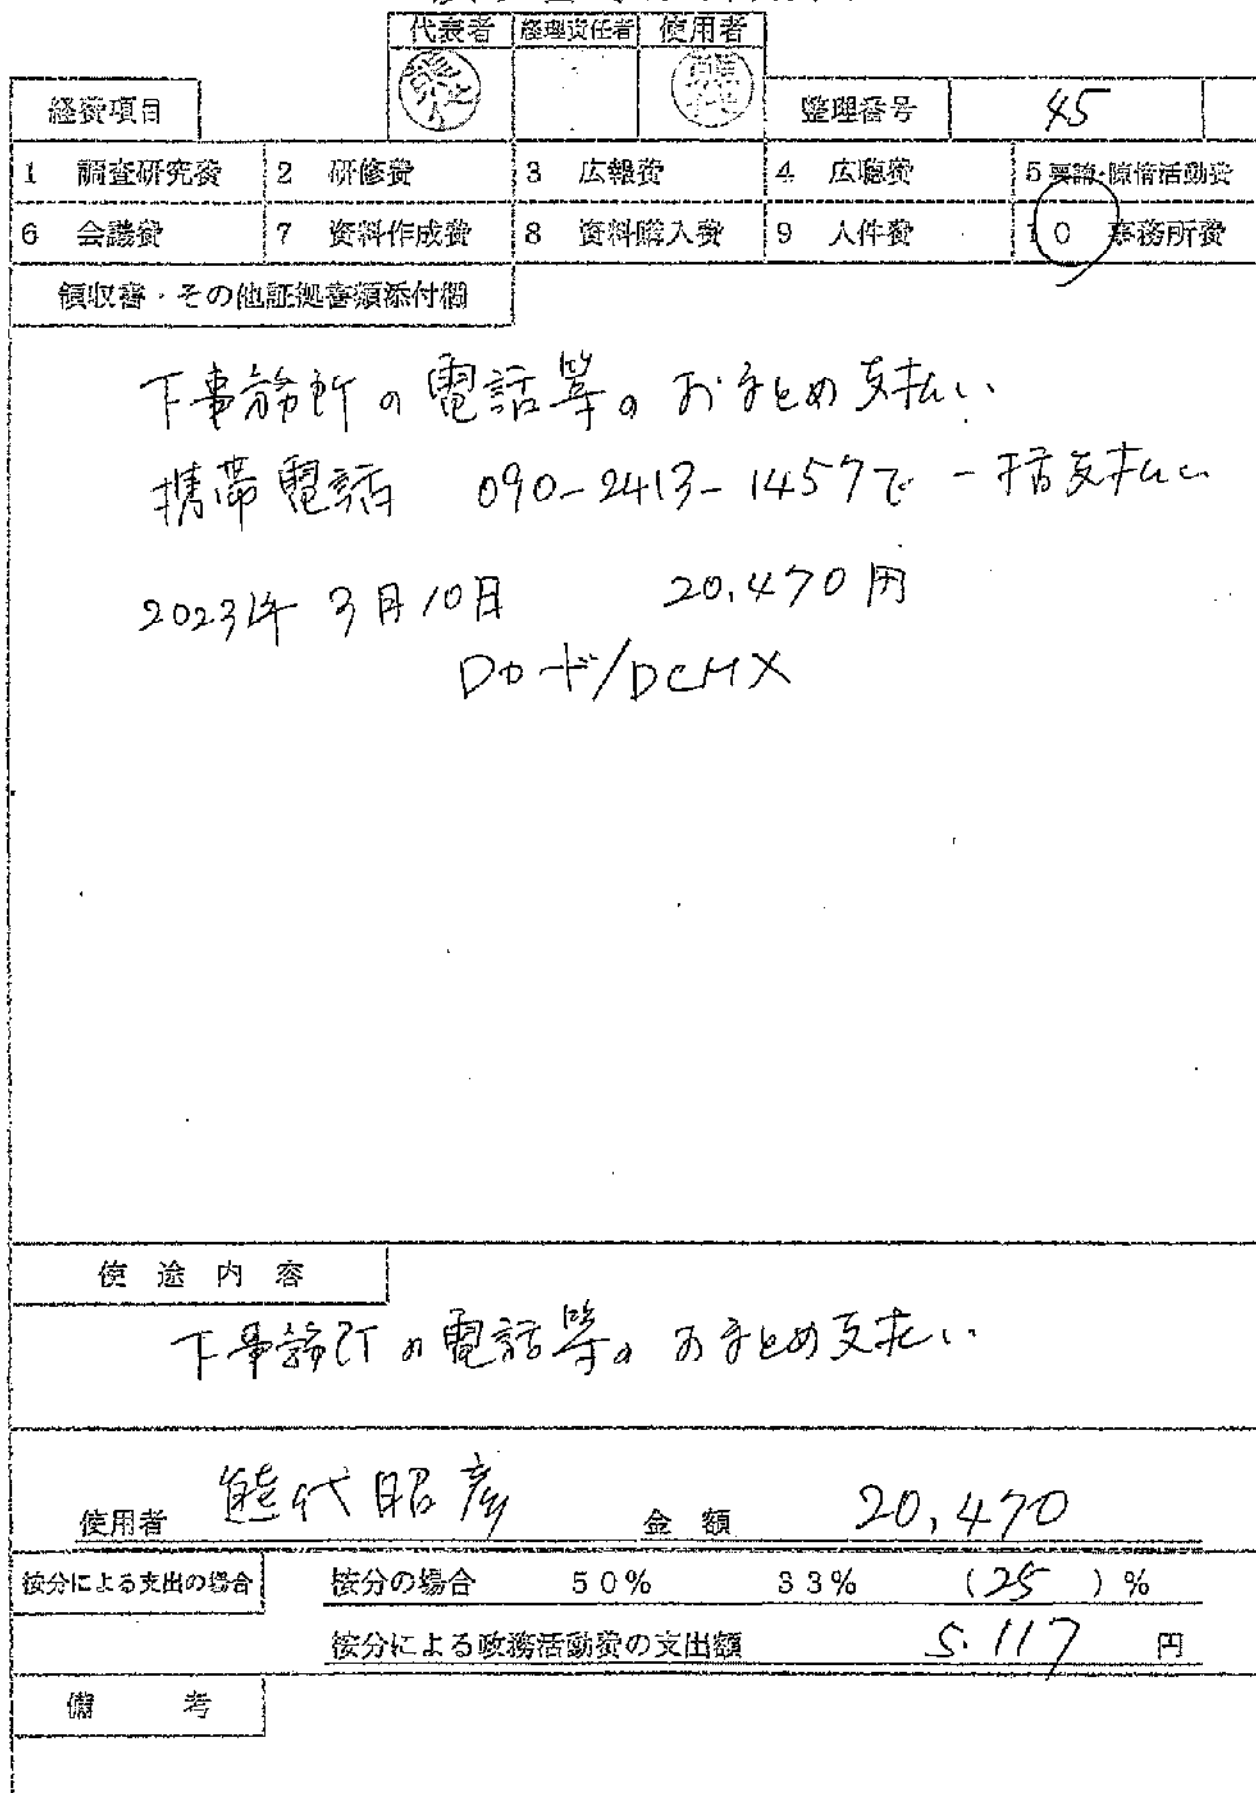 代表者 経理責任者 使用者
経費項目 整理番号 45
1 調査研究費 2 研修費 3 広報費 4 広聴費 5 要請・陳情活動費
6 会議費 7 資料作成費 8 資料購入費 9 人件費 10 事務所費
領収書・その他証拠書類添付欄
下事務所の電話等のおまとめ支払い
携帯電話 090-2413-1457で一括支払い
2023年3月10日 20,470円
Dカード/DCMX
使途内容
下事務所の電話等のおまとめ支払い
使用者 熊代昭彦 金額 20,470
按分による支出の場合 按分の場合 50% 33% (25)%
按分による政務活動費の支出額 5.117円
備考